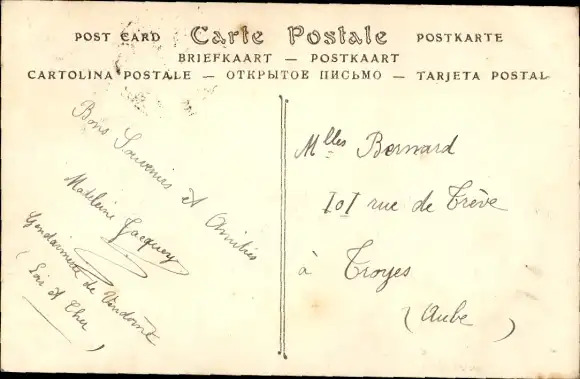 POST CARD Carte Postale POSTKARTE
BRIEFKAART — POSTKAART
CARTOLINA POSTALE — ОТКРЫТОЕ ПИСЬМО — TARJETA POSTAL
Bons Souvenirs et Amitiés
Madeleine
Jacquey
Gendarmerie de Vendome
(Loir et Cher)
Mlles Bernard
101 rue de Trève
à Troyes
(Aube)